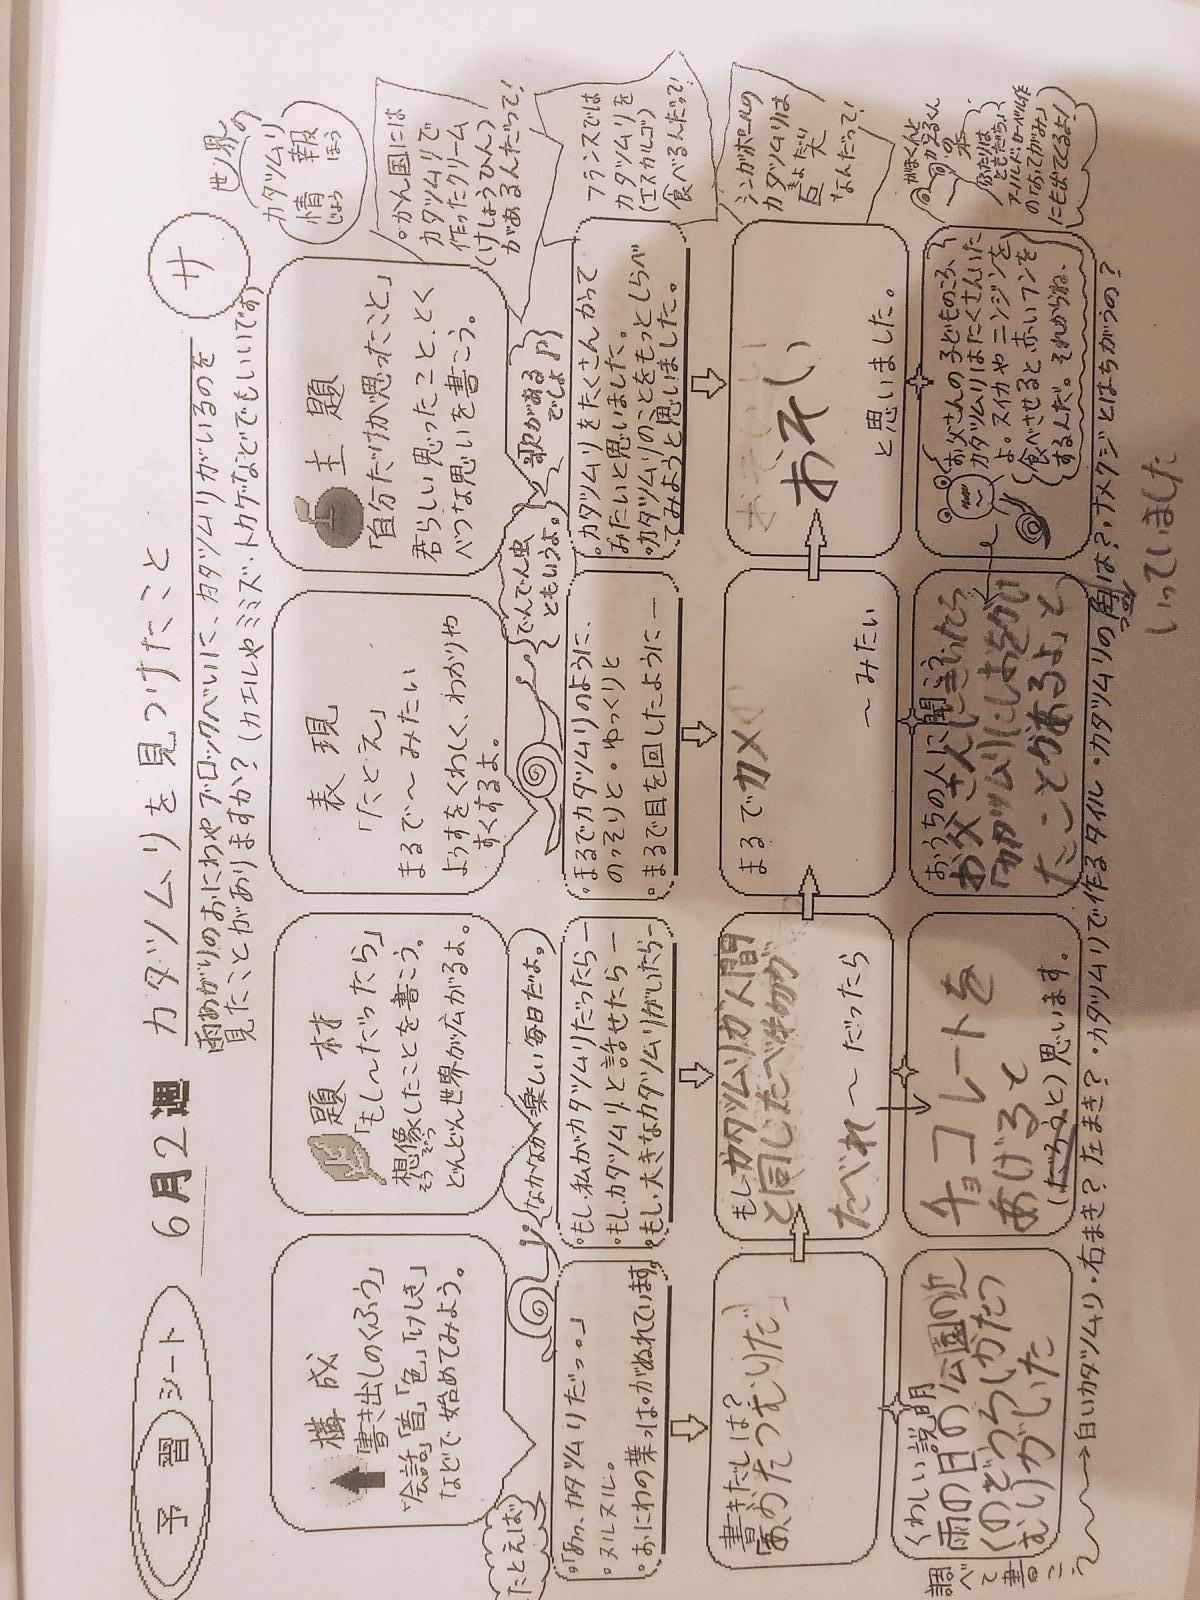 予習シート
6月2週
カタツムリを見つけたこと
サ
雨あがりのおにわやブロックべいに、カタツムリがいるのを
見たことがありますか?(カエルやミミズ・トカゲなどでもいいです)
世界の
カタツムリ
情報
じょう ほう
構成
書き出しのくふう
「会話」「音」「色」「けしき」
などで始めてみよう。
題材
「もし〜だったら」
想像したことを書こう。
そうぞう
どんどん世界が広がるよ。
表現
「たとえ」
まるで〜みたい
ようすをくわしく、わかりや
すくするよ。
主題
「自分だけが思ったこと」
君らしい思ったこと、とく
べつな思いを書こう。
かん国には
カタツムリで
作ったクリーム
(けしょうひん)
があるんだって!
たとえば
なかなか楽しい毎日だよ。
でんでん虫
ともいうよ。
歌がある
でしょ
。「あっ、カタツムリだっ。」
。ヌルヌル。
。おにわの葉っぱがぬれています。
。もし、私がカタツムリだったら―
。もし、カタツムリと話せたら―
。もし、大きなカタツムリがいたら―
。まるでカタツムリのように、
のっそりと・ゆっくりと
。まるで目を回したように―
。カタツムリをたくさんかって
みたいと思いました。
。カタツムリのことをもっとしらべ
てみようと思いました。
フランスでは
カタツムリを
(エスカルゴ)
食べるんだって!
書きだしは?
もし カタツムリが人間
と同じたべ物が
たべれ〜だったら
まるでカメ
〜みたい
おそい
と思いました。
シンガポールの
カタツムリは
きょだい
巨大
なんだって!
調べて書こう
くわしい説明
雨の日の公園の近
くのどうろにかたつ
むりがいた
チョコレートを
あげると
(だろうと)思います。
おうちの人に聞こう?
お父さんにきいたら
「カタツムリにしおをかけ
たことがあるよ」と
いっていました
お父さんの子どものころ、
カタツムリはたくさんいた
よ。スイカやニンジンを
食べさせると、赤いフンを
するんだ。それからね、
がまくんと
かえるくん
の本
「ふたりは
ともだち」
アーノルド・ローベル作
の「おてがみ」
にも出てくるよ!
→白いカタツムリ・右まき?左まき?・カタツムリで作るタイル・カタツムリの角は?・ナメクジとはちがうの?